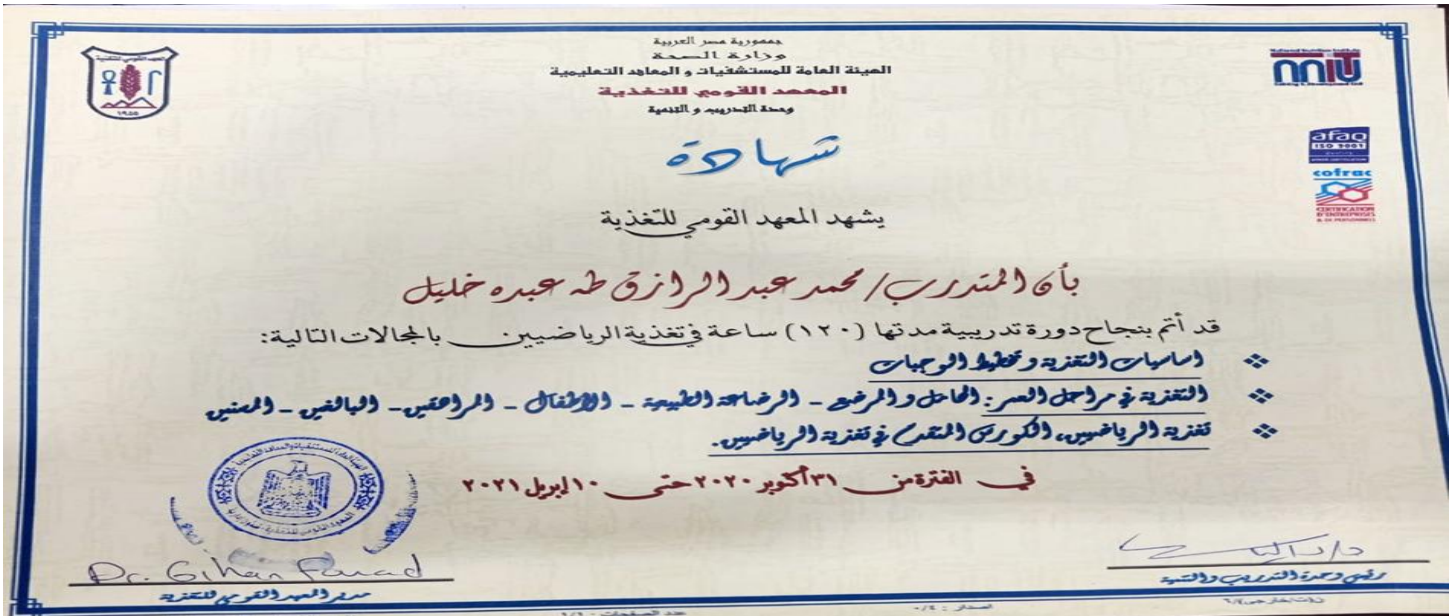 جمهورية مصر العربية
وزارة الصحة
الهيئة العامة للمستشفيات و المعاهد التعليمية
المعهد القومي للتغذية
وحدة التدريب و التنمية
١٩٥٥
National Nutrition Institute
afaq
ISO 9001
cofrac
CERTIFICATION
D'ENTREPRISES
& DE PERSONNELS
شهادة
يشهد المعهد القومي للتغذية
بأن المتدرب/ محمد عبد الرازق طه عبده خليل
قد أتم بنجاح دورة تدريبية مدتها (١٢٠) ساعة في تغذية الرياضيين بالمجالات التالية:
❖ اساسيات التغذية و تخطيط الوجبات
❖ التغذية في مراحل العمر: الحامل و المرضع - الرضاعة الطبيعية - الأطفال - المراهقين - البالغين - المسنين
❖ تغذية الرياضيين، الكورس المتقدم في تغذية الرياضيين.
في الفترة من ٣١ أكتوبر ٢٠٢٠ حتى ١٠ إبريل ٢٠٢١
Dr. Gihan Fouad
مدير المعهد القومي للتغذية
رئيس وحدة التدريب والتنمية
عدد الصفحات : ١/١